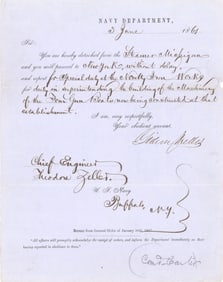 NAVY DEPARTMENT,
3 June 1861
Sir:
You are hereby detached from the Steamer Michigan
and you will proceed to New York, without delay,
and report for Special duty at the Novelty Iron Works
for duty in superintending the building of the Machinery
of the Gun Boats now being constructed at that
establishment.
I am, very respectfully,
Your obedient servant,
Gideon Welles
Chief Engineer
Theodore Zeller
U. S. Navy
Buffalo,
N.Y.
Extract from General Order of January
"All officers will promptly acknowledge the receipt of orders, and inform the Department immediately on their
having reported in obedience to them."